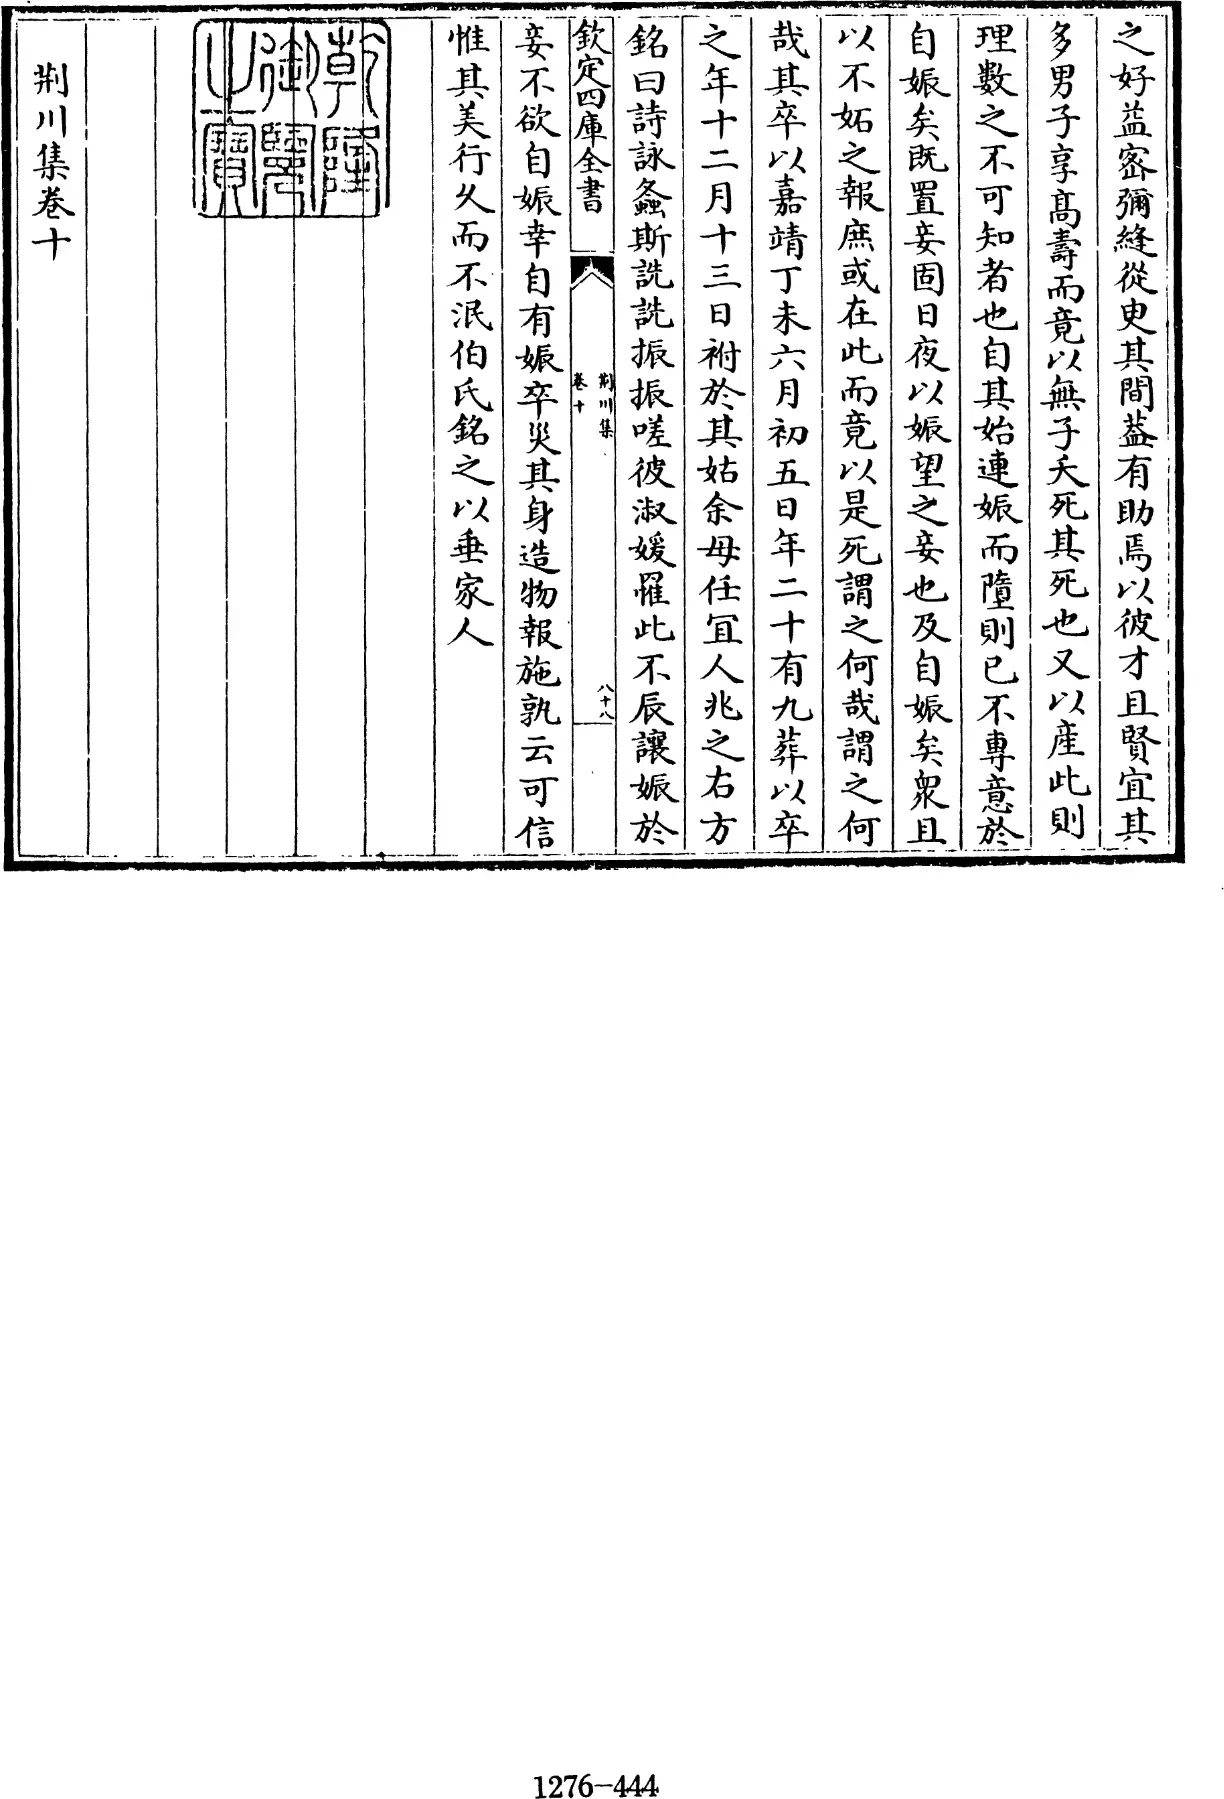 之好益密彌縫從叓其間葢有助焉以彼才且賢宜其
多男子享髙壽而竟以無子夭死其死也又以産此則
理數之不可知者也自其始連娠而墮則已不專意於
自娠矣既置妾固日夜以娠望之妾也及自娠矣衆且
以不妬之報庶或在此而竟以是死謂之何哉謂之何
哉其卒以嘉靖丁未六月初五日年二十有九葬以卒
之年十二月十三日祔於其姑余母任冝人兆之右方
銘曰詩詠螽斯詵詵振振嗟彼淑媛罹此不辰讓娠於
欽定四庫全書
荆川集
卷十
八十八
妾不欲自娠幸自有娠卒災其身造物報施孰云可信
惟其美行久而不泯伯氏銘之以垂家人
乾隆
御覽
之寶
荆川集卷十
1276-444